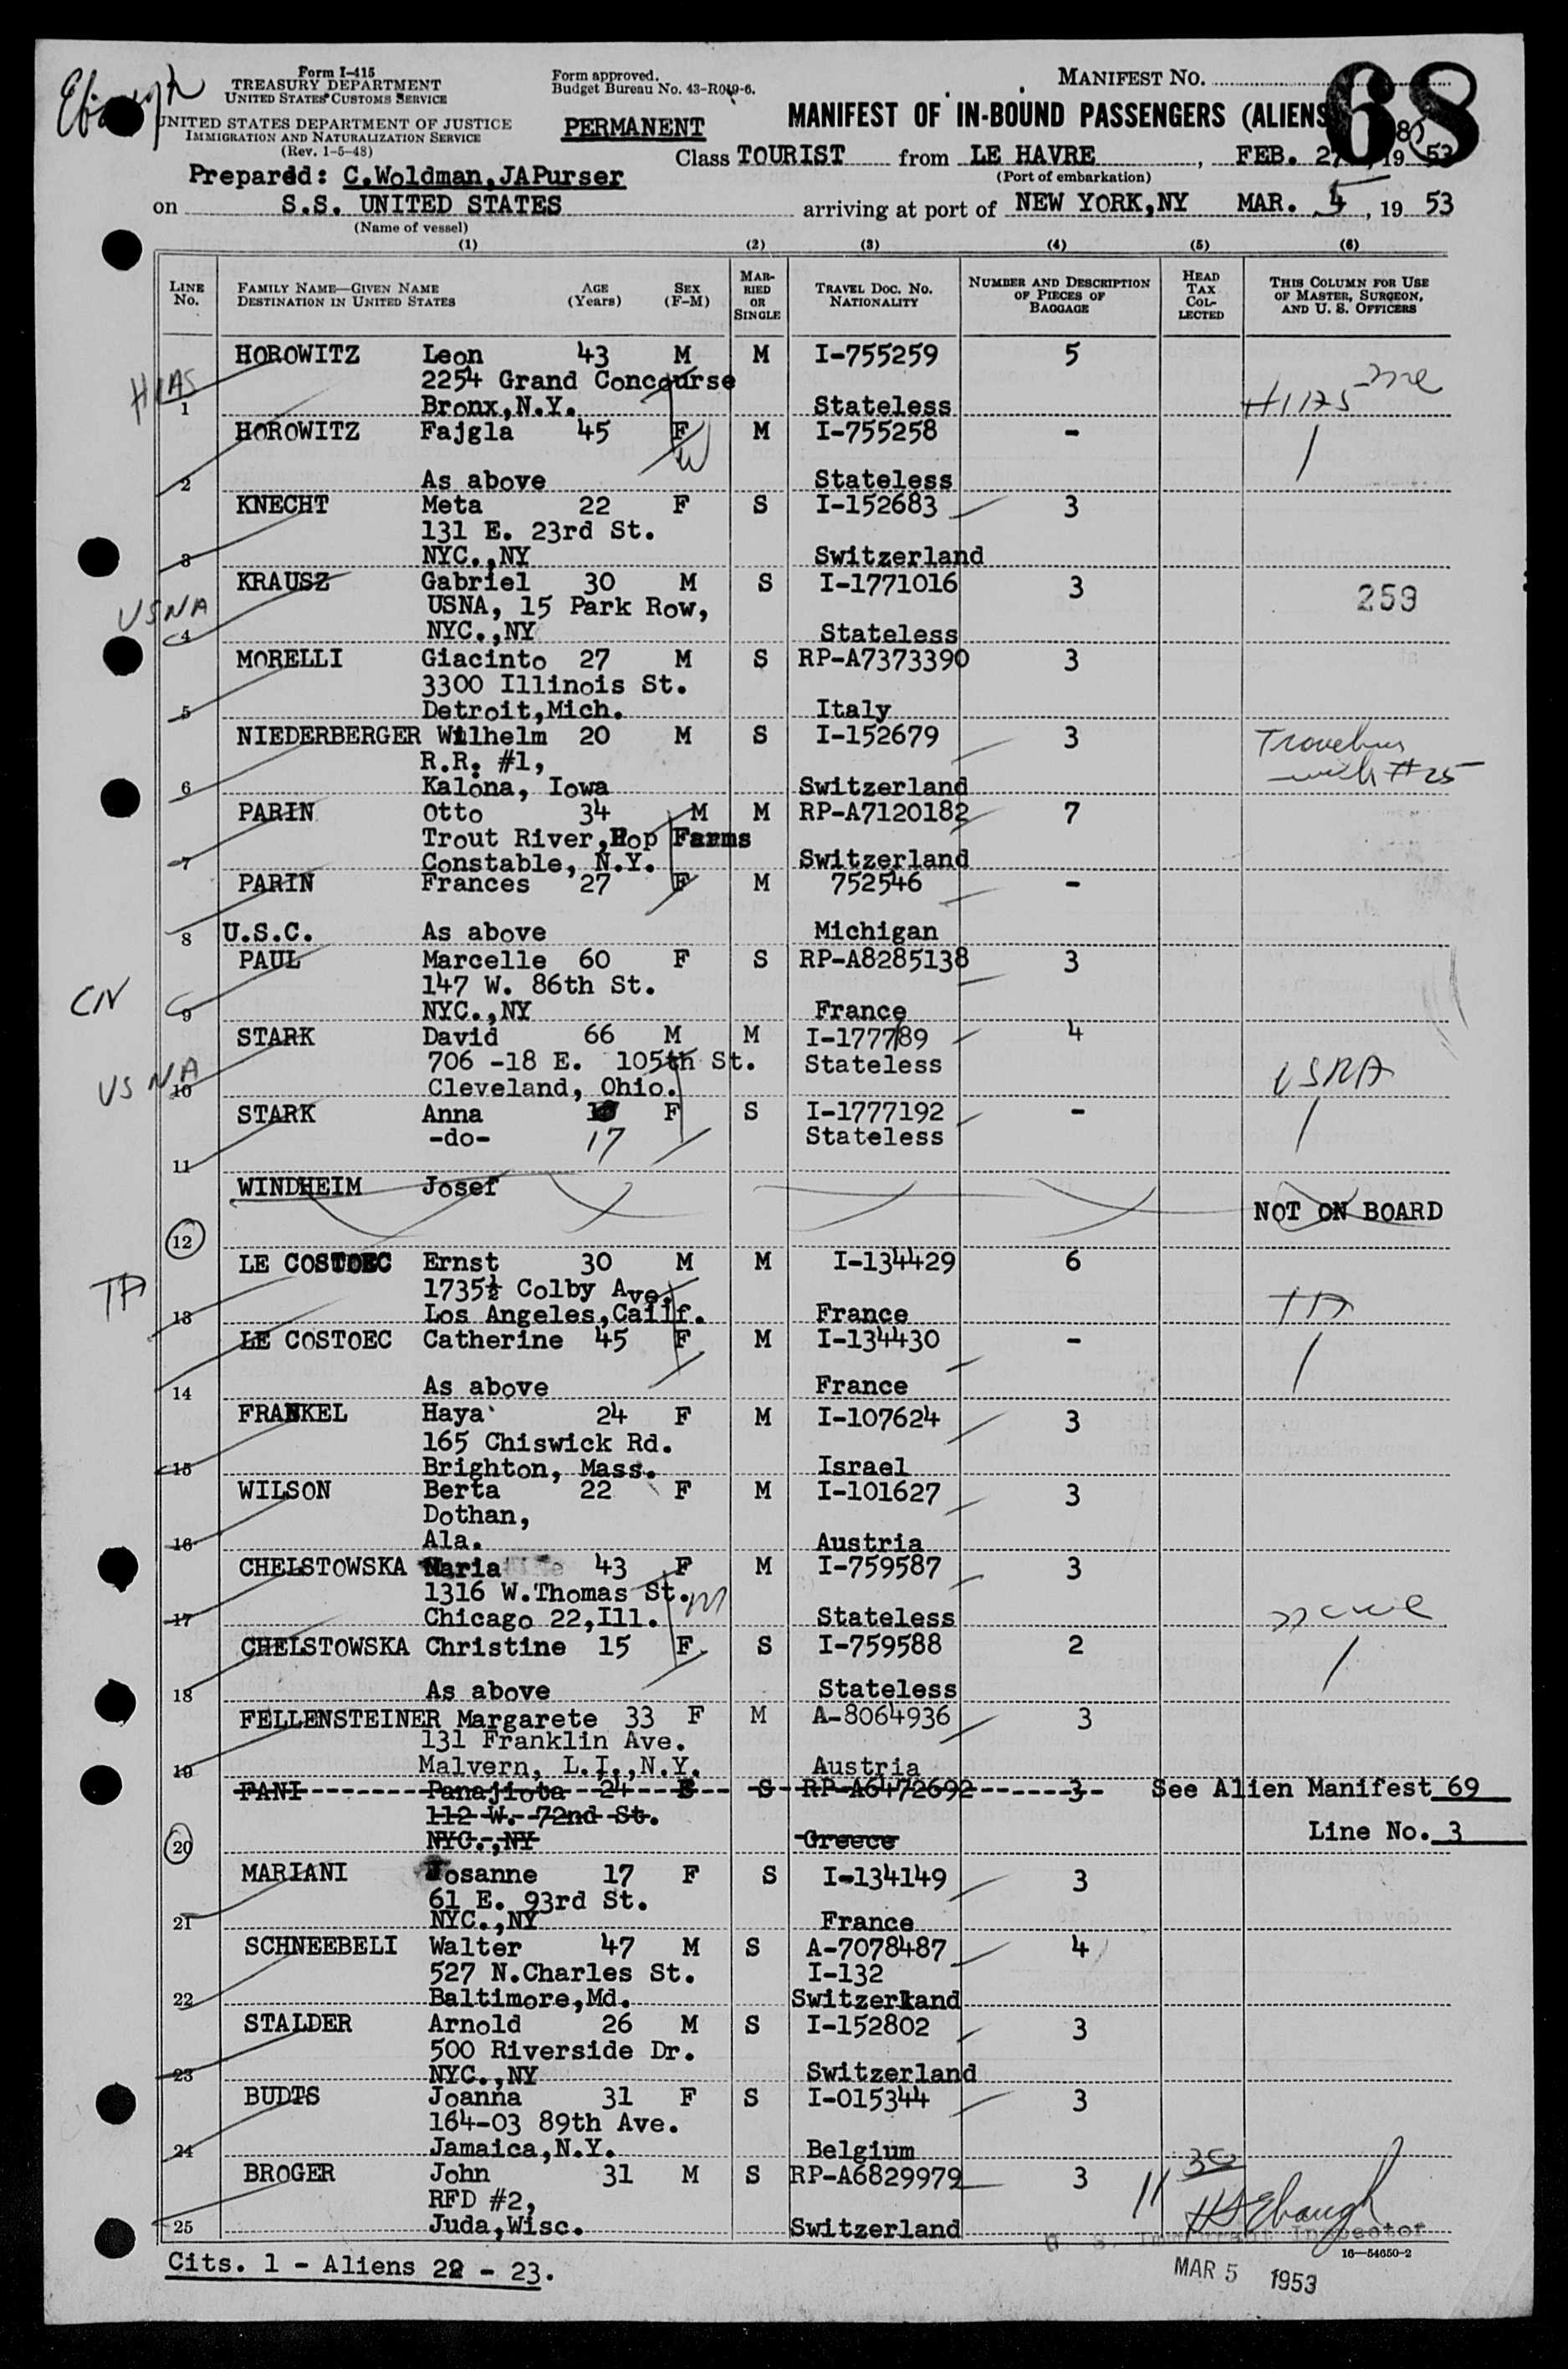 Form I-415
TREASURY DEPARTMENT
UNITED STATES CUSTOMS SERVICE
UNITED STATES DEPARTMENT OF JUSTICE
IMMIGRATION AND NATURALIZATION SERVICE
(Rev. 1-5-48)
Form approved.
Budget Bureau No. 43-R019-6.
PERMANENT
MANIFEST NO.
68
MANIFEST OF IN-BOUND PASSENGERS (ALIENS
Class TOURIST from LE HAVRE, FEB. 27, 19 53
(Port of embarkation)
Prepared: C.Woldman,JAPurser
on S.S. UNITED STATES arriving at port of NEW YORK,NY MAR. 5, 19 53
(Name of vessel)
(1) (2) (3) (4) (5) (6)
LINE No. FAMILY NAME—GIVEN NAME DESTINATION IN UNITED STATES AGE (Years) SEX (F-M) MARRIED OR SINGLE TRAVEL DOC. NO. NATIONALITY NUMBER AND DESCRIPTION OF PIECES OF BAGGAGE HEAD TAX COLLECTED THIS COLUMN FOR USE OF MASTER, SURGEON, AND U. S. OFFICERS
HOROWITZ Leon 43 M M I-755259 5
2254 Grand Concourse
HIAS 1 Bronx,N.Y. Stateless HIAS
HOROWITZ Fajgla 45 F M I-755258 -
2 As above Stateless
KNECHT Meta 22 F S I-152683 3
131 E. 23rd St.
3 NYC.,NY Switzerland
KRAUSZ Gabriel 30 M S I-1771016 3 259
USNA USNA, 15 Park Row,
4 NYC.,NY Stateless
MORELLI Giacinto 27 M S RP-A7373390 3
3300 Illinois St.
5 Detroit,Mich. Italy
NIEDERBERGER Wilhelm 20 M S I-152679 3
R.R. #1,
6 Kalona, Iowa Switzerland with #25
PARIN Otto 34 M M RP-A7120182 7
Trout River,Hop Farms
7 Constable, N.Y. Switzerland
PARIN Frances 27 F M 752546 -
8 U.S.C. As above Michigan
PAUL Marcelle 60 F S RP-A8285138 3
147 W. 86th St.
9 NYC.,NY France
STARK David 66 M M I-177789 4
706 -18 E. 105th St. Stateless
USNA 10 Cleveland, Ohio. USNA
STARK Anna F S I-1777192 -
-do- 17 Stateless
11
WINDHEIM Josef
NOT ON BOARD
12
LE COSTOEC Ernst 30 M M I-134429 6
1735½ Colby Ave.
13 Los Angeles,Cailf. France
LE COSTOEC Catherine 45 F M I-134430 -
14 As above France
FRANKEL Haya 24 F M I-107624 3
165 Chiswick Rd.
15 Brighton, Mass. Israel
WILSON Berta 22 F M I-101627 3
Dothan,
16 Ala. Austria
CHELSTOWSKA Maria 43 F M I-759587 3
1316 W.Thomas St.
17 Chicago 22,Ill. Stateless
CHELSTOWSKA Christine 15 F S I-759588 2
18 As above Stateless
FELLENSTEINER Margarete 33 F M A-8064936 3
131 Franklin Ave.
19 Malvern, L.I.,N.Y. Austria
FANI Panajiota 24 F S RP-A6472692 3 See Alien Manifest 69
112 W. 72nd St.
20 NYC.,NY Greece Line No. 3
MARIANI Josanne 17 F S I-134149 3
61 E. 93rd St.
21 NYC.,NY France
SCHNEEBELI Walter 47 M S A-7078487 4
527 N.Charles St. I-132
22 Baltimore,Md. Switzerland
STALDER Arnold 26 M S I-152802 3
500 Riverside Dr.
23 NYC.,NY Switzerland
BUDTS Joanna 31 F S I-015344 3
164-03 89th Ave.
24 Jamaica,N.Y. Belgium
BROGER John 31 M S RP-A6829979 3
RFD #2,
25 Juda,Wisc. Switzerland
Immigrant Inspector
16—54650-2
Cits. 1 - Aliens 22 - 23.
MAR 5 1953